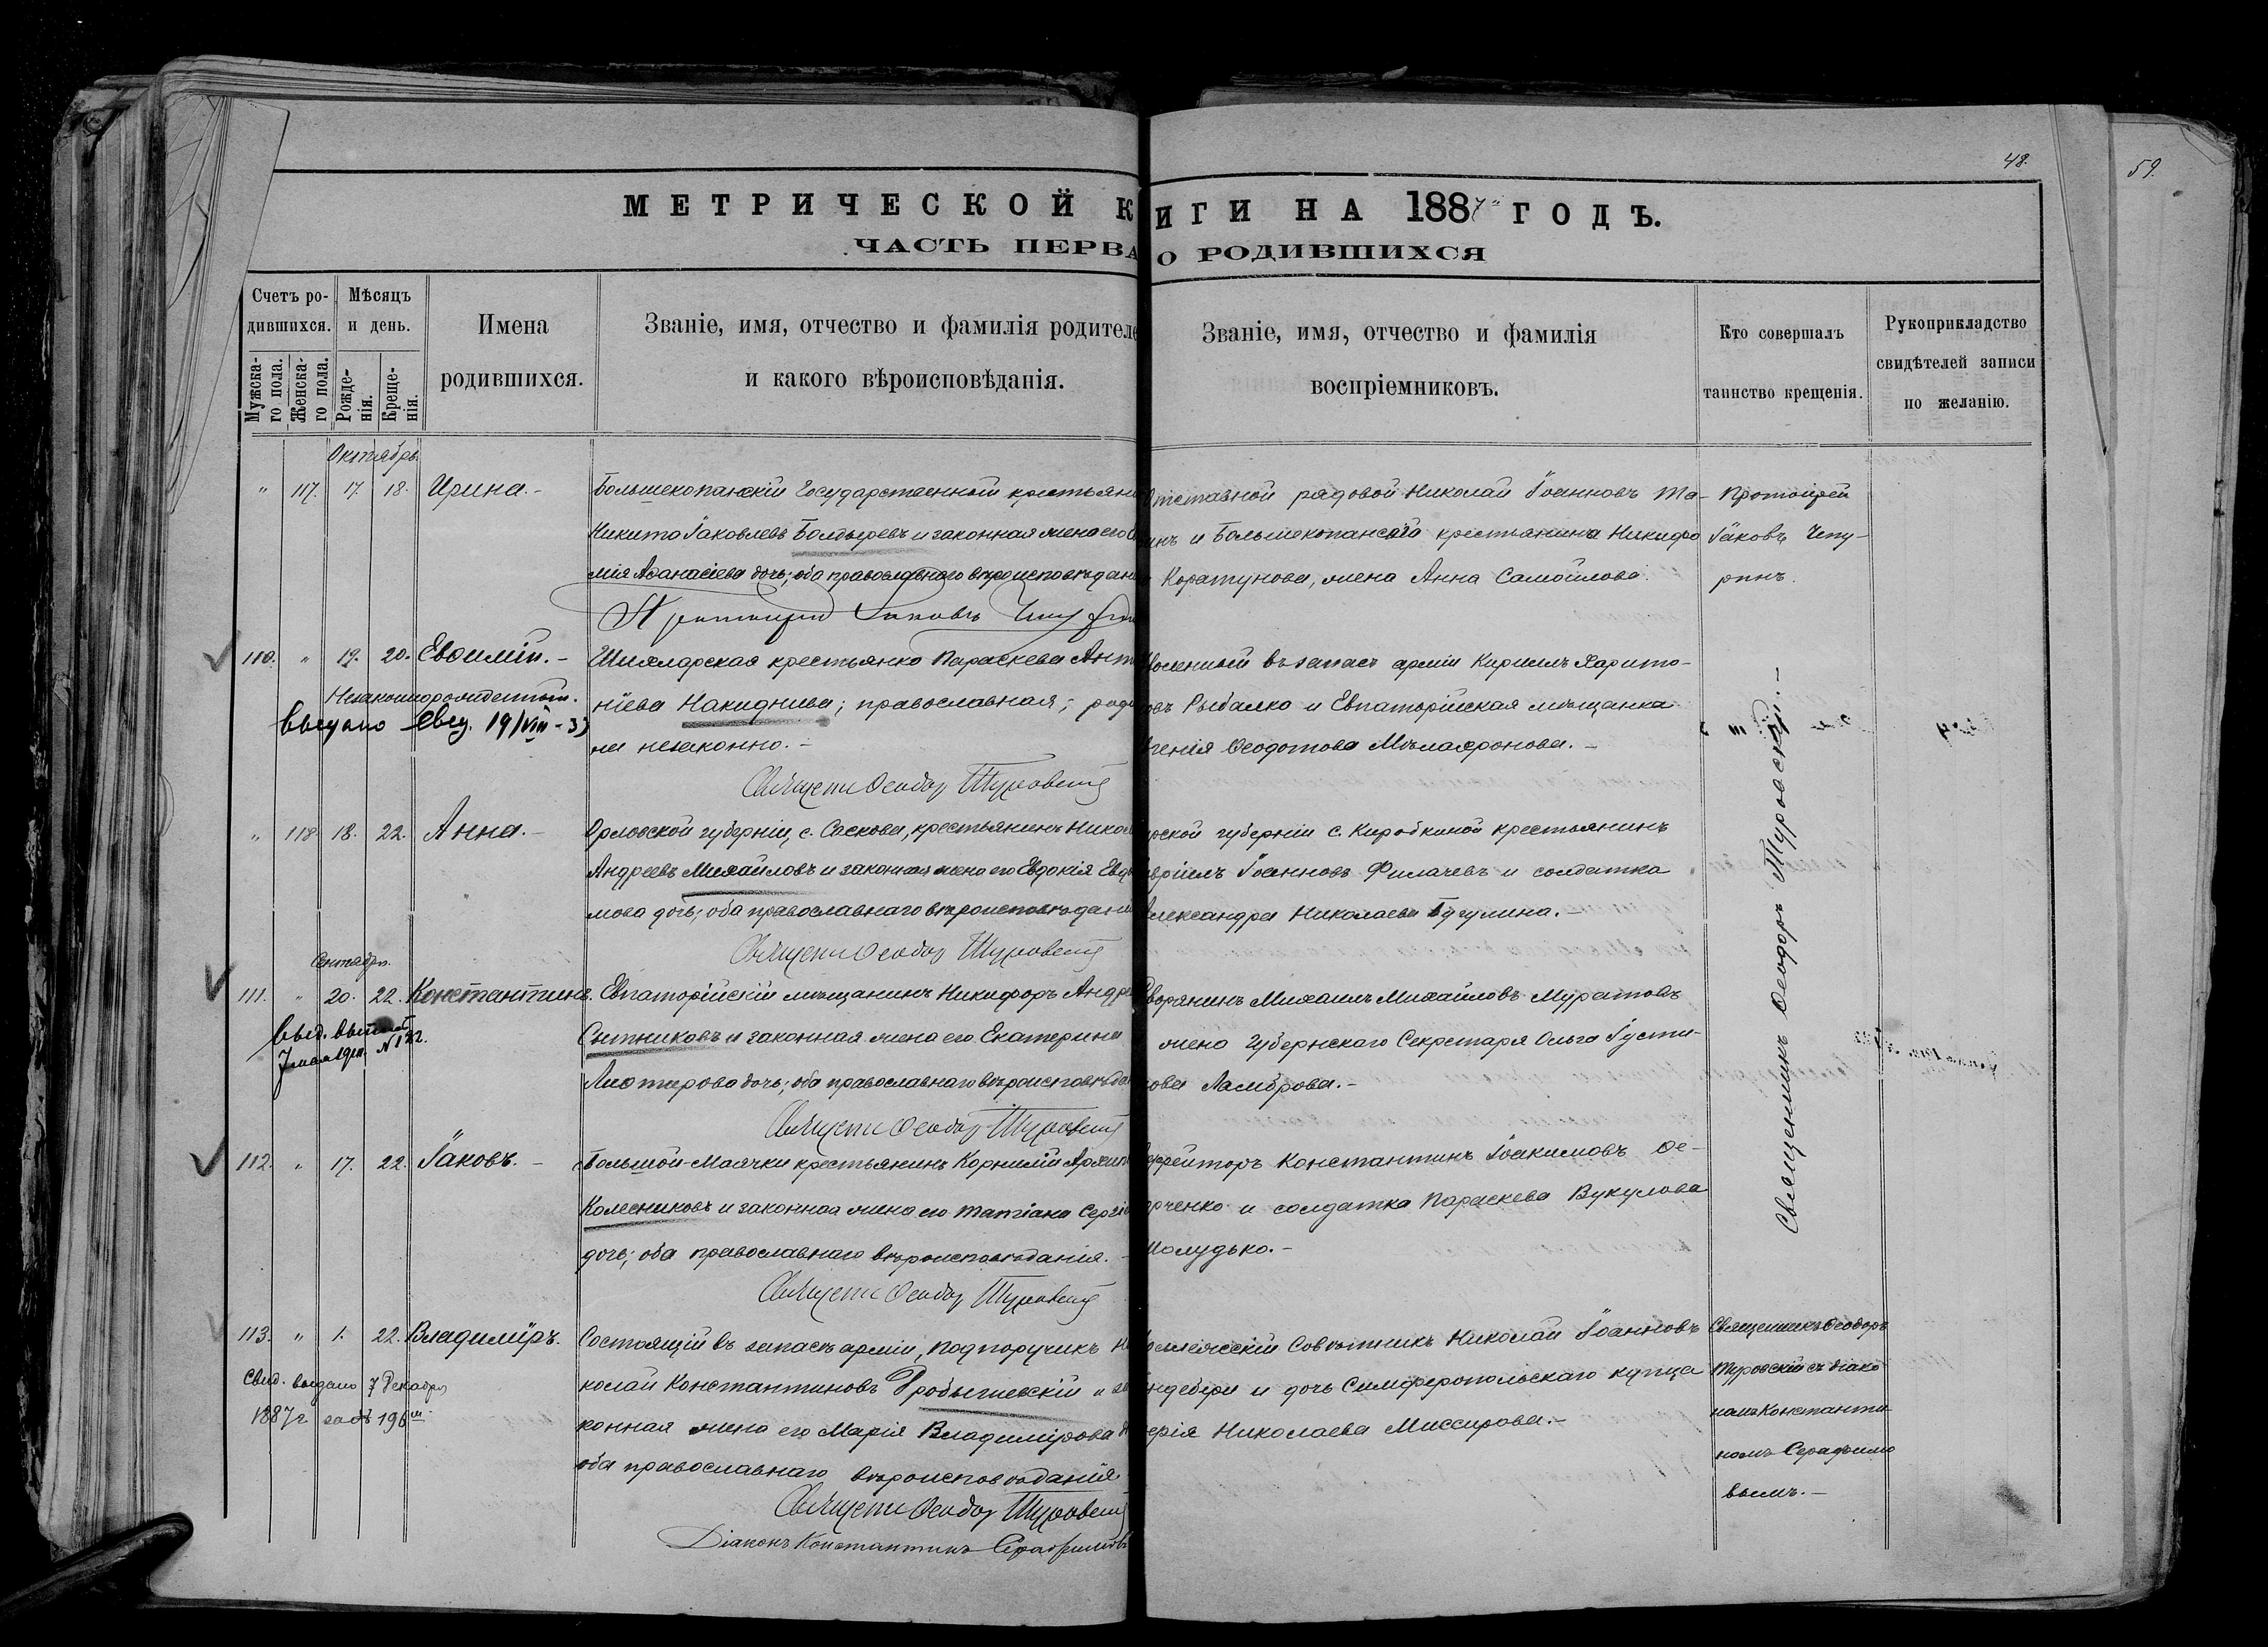 48.
59.
МЕТРИЧЕСКОЙ К
ИГИ НА 1887 ГОДЪ.
ЧАСТЬ ПЕРВА
О РОДИВШИХСЯ
Счетъ ро-
дившихся.
Мужска-
го пола.
Женска-
го пола.
Мѣсяцъ
и день.
Рожде-
нія.
Креще-
нія.
Имена
родившихся.
Званіе, имя, отчество и фамилія родителе
и какого вѣроисповѣданія.
Званіе, имя, отчество и фамилія
воспріемниковъ.
Кто совершалъ
таинство крещенія.
Рукоприкладство
свидѣтелей записи
по желанію.
Октябрь.
" 117. 17. 18. Ирина.-
Большекопанскій Государственный крестьяни
Никита Іаковлевъ Болдыревъ и законная жена его
мія Аѳанасіева дочь; оба православнаго вѣроисповѣдані
Протоіерей Іаковъ
Отставной рядовой Николай Іоанновъ Та-
инъ и Большекопанскаго крестьянина Никифо
Коратунова, жена Анна Самойлова.
Протоіерей
Іаковъ Чепу-
ринъ.
110. " 19. 20. Евѳимій.-
Незаконнорожденный.
Выдано свид. 19/VIII-33
крестьянка Параскева Ант
ніева Накиднива; православная; роди
ла незаконно.-
Священн Ѳеодор Туровскій
воленный въ запасъ арміи Кириллъ Харито-
овъ Рыбалко и Евпаторійская мѣщанка
генія Ѳеодотова
" 118 18. 22. Анна.-
Орловской губерніи, с. Саскова, крестьянинъ Никол
Андреевъ Михайловъ и законная жена его Евдокія Евд
мова дочь; оба православнаго вѣроисповѣдані
Священн Ѳеодор Туровскій
рской губерніи с. Коробкиной крестьянинъ
вріилъ Іоанновъ Филачевъ и солдатка
Александра Николаева
Сентябрь.
111. " 20. 22. Константинъ.
Выд.
7 мая 1911. N 122.
Евпаторійскій мѣщанинъ Никифоръ Андре
Сытниковъ и законная жена его Екатерина
дочь; оба православнаго вѣроисповѣда
Священн Ѳеодор Туровскій
Дворянинъ Михаилъ Михайловъ Муратовъ
жена Губернскаго Секретаря Ольга Іусти-
нова Ламброва.-
112. " 17. 22. Іаковъ.-
Большой-Маячки крестьянинъ Корнилій Архип
Колесниковъ и законная жена его Татіана Сергіе
дочь; оба православнаго вѣроисповѣданія.-
Священн Ѳеодор Туровскій
ефрейторъ Константинъ Іоакимовъ Ѳе-
орченко и солдатка Параскева Вукулова
Шолудько.-
Священникъ Ѳеодоръ Туровскій.-
113. " 1. 22. Владиміръ.
Свид. выдано 7 Декабря
1887 г. за № 196
Состоящій въ запасѣ арміи, подпоручикъ Ни
колай Константиновъ Гробычевскій и за
конная жена его Марія Владимірова
оба православнаго вѣроисповѣданія
Священн Ѳеодор Туровскій
Діаконъ Константинъ Серафимовъ
Совѣтникъ Николай Іоанновъ
ндебери и дочь Симферопольскаго купца
ерія Николаева Миссирова.-
Священникъ Ѳеодоръ
Туровскій съ діако
номъ Константи
номъ Серафимо
вымъ.-